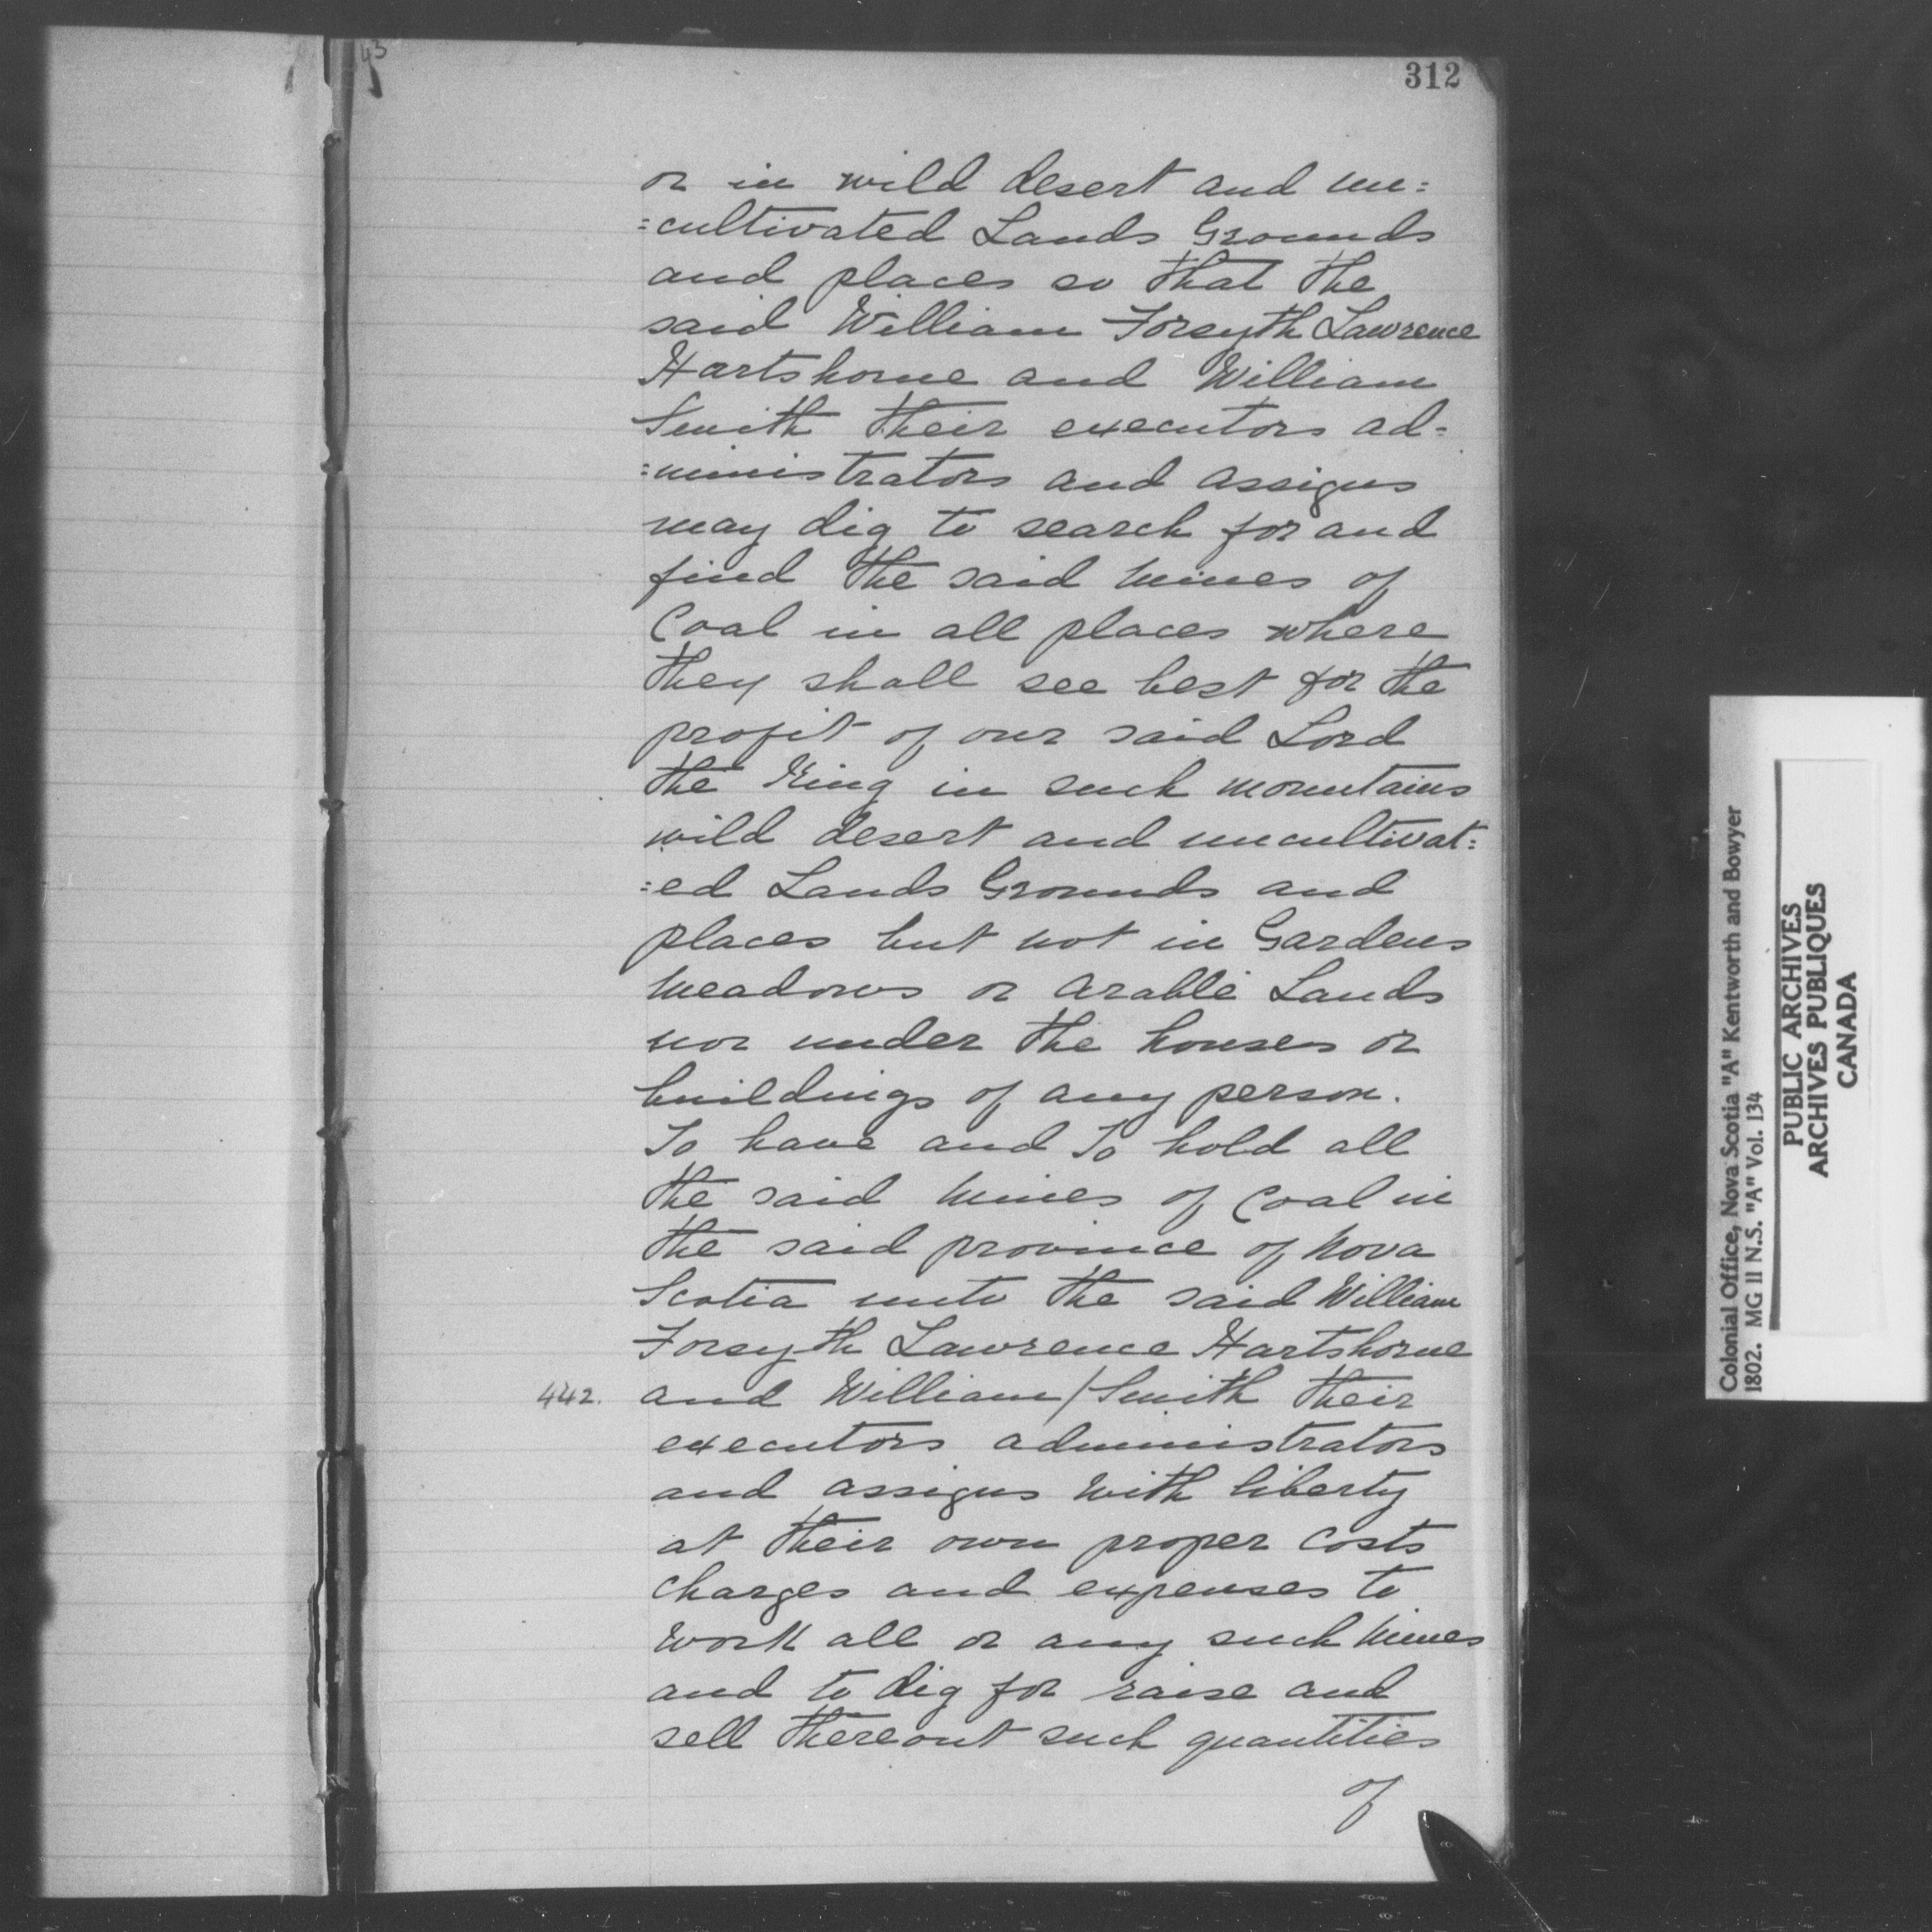 312
or in wild desert and un:
=cultivated Lands Grounds
and places so that the
said William Forsyth Lawrence
Hartshorne and William
Smith their executors ad=
=ministrators and assigns
may dig to search for and
find the said Mines of
Coal in all places where
they shall see best for the
profit of our said Lord
the King in such mountains
wild desert and uncultivat:
:ed Lands Grounds and
places but not in Gardens
Meadows or arable Lands
nor under the houses or
buildings of any person.
To have and To hold all
the said Mines of Coal in
the said province of Nova
Scotia unto the said William
Forsyth Lawrence Hartshorne
442. and William/Smith their
executors administrators
and assigns with liberty
at their own proper Costs
charges and expenses to
work all or any such Mines
and to dig for raise and
sell thereout such quantities
of
Colonial Office, Nova Scotia "A" Kentworth and Bowyer
1802. MG 11 N.S. "A" Vol. 134
PUBLIC ARCHIVES
ARCHIVES PUBLIQUES
CANADA